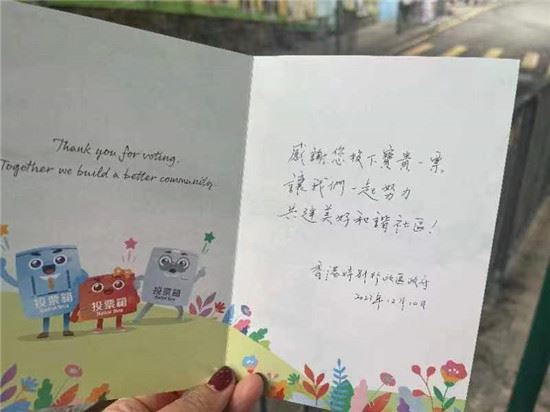 Thank you for voting.
Together we build a better community.
投票箱
Ballot Box
投票箱
Ballot Box
投票箱
Ballot Box
感謝您投下寶貴一票,
讓我們一起努力
共建美好和諧社區!
香港特別行政區政府
2023年12月10日